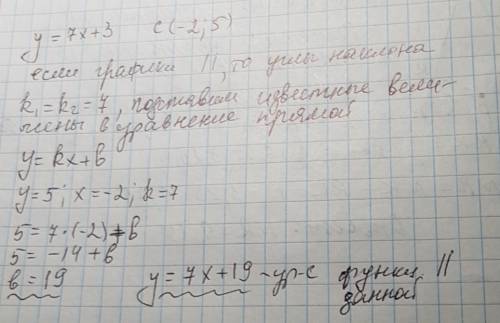 y = 7x+3 c(-2; 5)
если графики ||, то углы наклона
k₁ = k₂ = 7, подставим известные вели-
чины в уравнение прямой
y = kx + b
y = 5; x = -2; k = 7
5 = 7·(-2) + b
5 = -14 + b
b = 19 y = 7x + 19 - ур-е функц. ||
данной